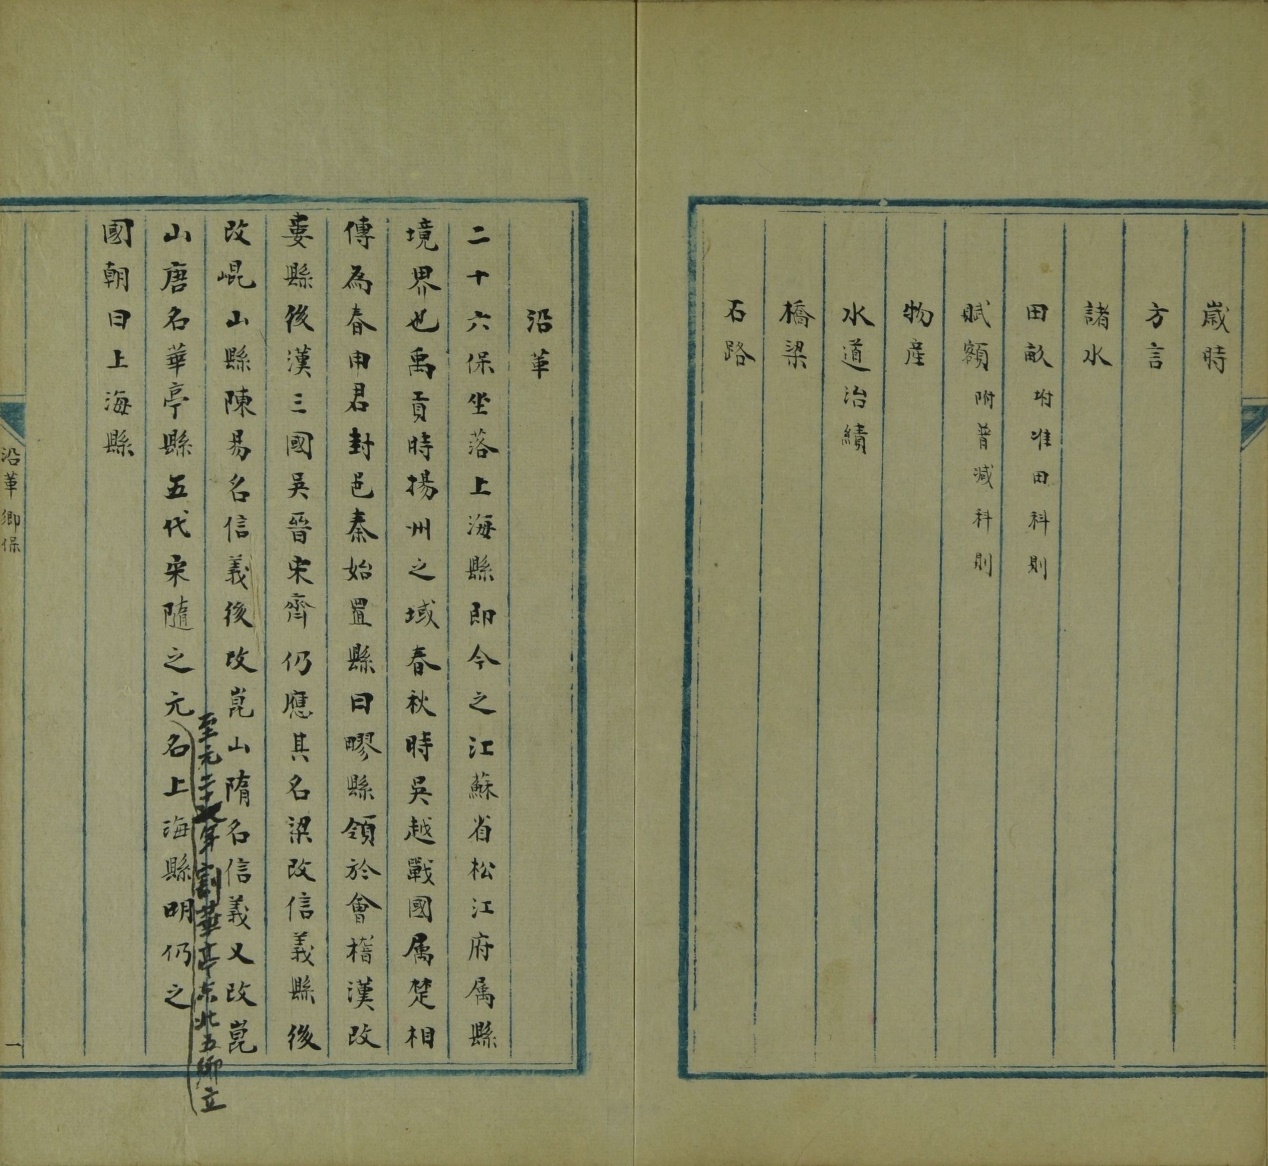 歲時
方言
諸水
田畝 坿准田科則
賦額 附普减科則
物産
水道治績
橋梁
石路
沿革
二十六保坐落上海縣即今之江蘇省松江府属縣
境界也禹貢時揚州之域春秋時吳越戰國属楚相
傳為春申君封邑秦始置縣曰疁縣領於會稽漢改
婁縣後漢三國吳晉宋齊仍應其名梁改信義縣後
改崐山縣陳易名信義後改崑山隋名信義又改崑
山唐名華亭縣五代宋隨之元名上海縣明仍之
至元二十七年割華亭東北五鄉立
國朝曰上海縣
沿革 鄉保
一